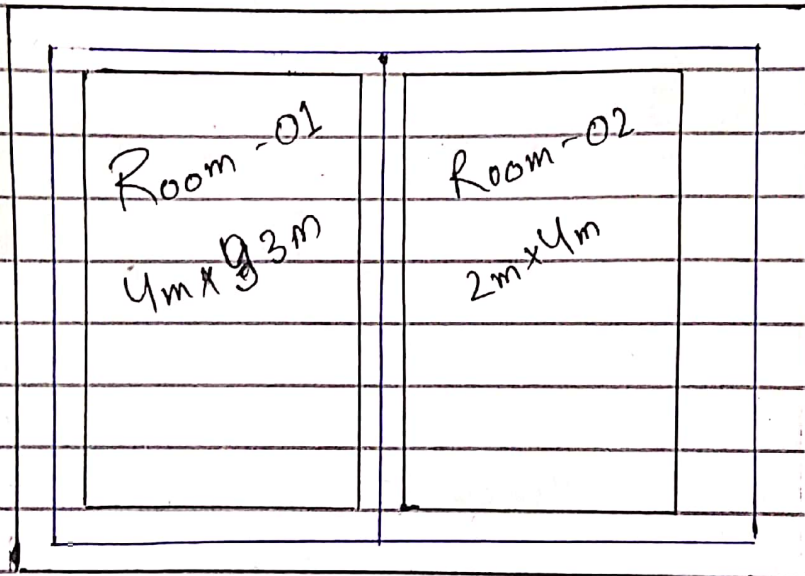 Room-01
4m x 3m
Room-02
2m x 4m